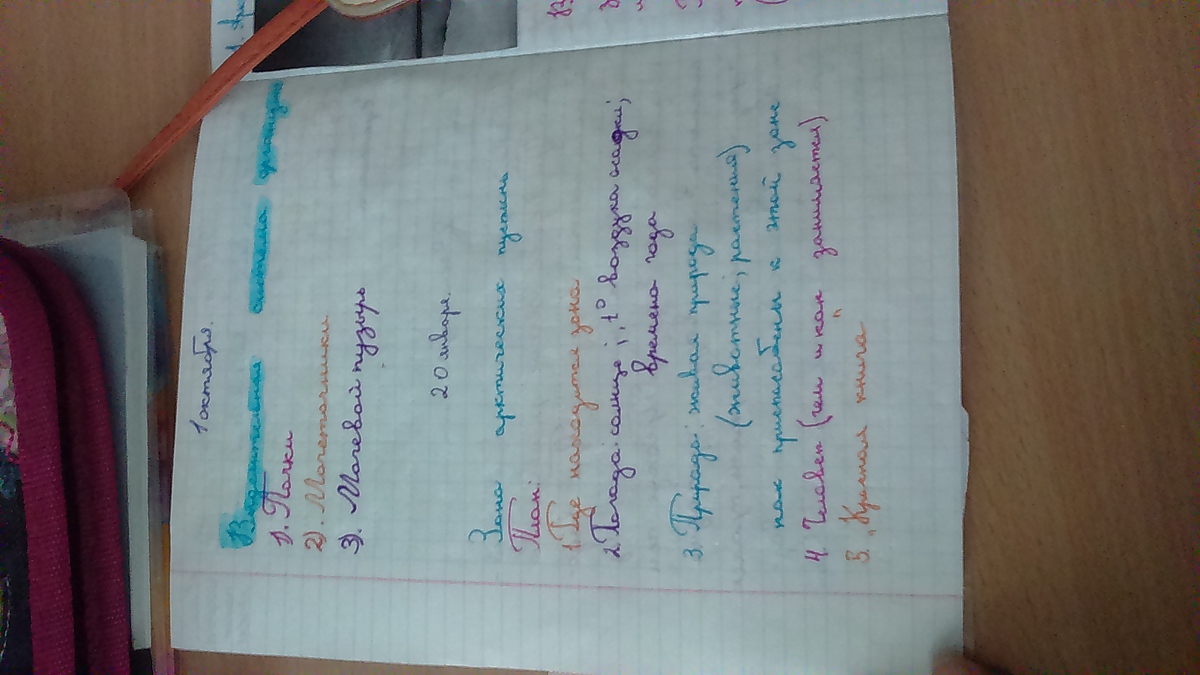 1 октября.
Выделительная система
1). Почки
2). Мочеточники.
3). Мочевой пузырь
20 января.
Зона арктических пустынь
План:
1. Где находится зона
2. Погода: солнце; t° воздуха осадки;
времена года
3. Природа: живая природа
(животные, растения)
как приспособлены к этой зоне
4. Человек (чем и как занимается)
5. „Красная книга"